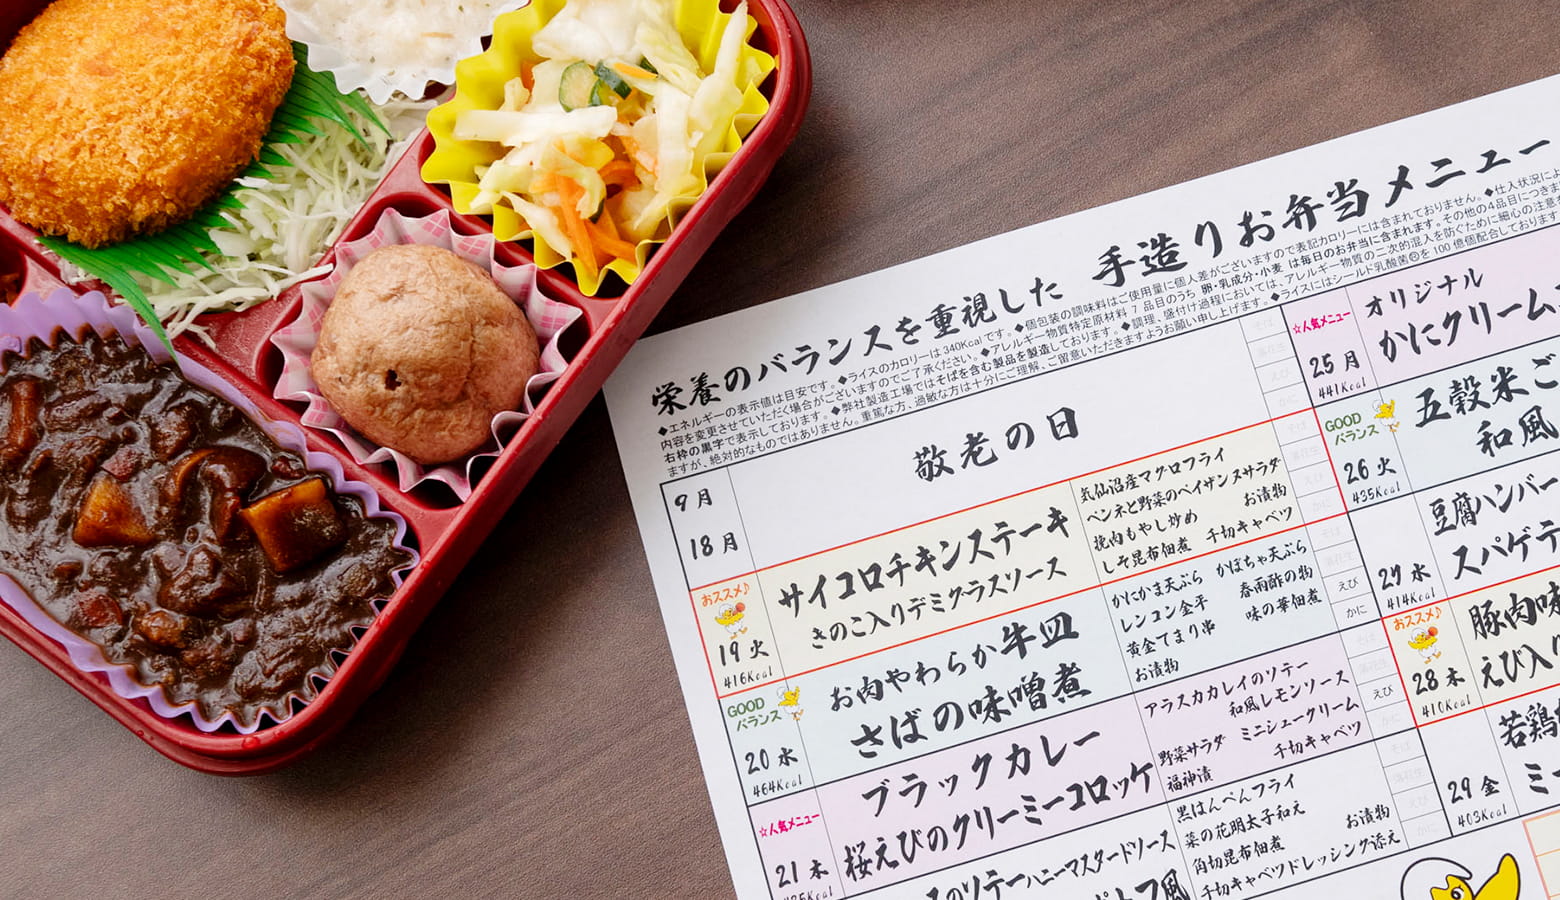 栄養のバランスを重視した 手造りお弁当メニュー
◆エネルギーの表示値は目安です。◆ライスのカロリーは340Kcalです。◆個包装の調味料はご使用量に個人差がございますので表記カロリーには含まれておりません。◆仕入状況によ
内容を変更させていただく場合がございますのでご了承ください。◆アレルギー物質特定原材料7品目のうち 卵・乳成分・小麦 は毎日のお弁当に含まれます。その他の4品目につきま
右枠の黒字で表示しております。◆弊社製造工場ではそばを含む製品を製造しております。◆調理、盛付け過程においては、アレルギー物質の二次的混入を防ぐために細心の注意を
ますが、絶対的なものではありません。重篤な方、過敏な方は十分にご理解、ご留意いただきますようお願い申し上げます。◆ライスにはシールド乳酸菌Ⓡを100億個配合しております
9月
18月
敬老の日
そば
落花生
えび
かに
おススメ♪
19火
416Kcal
サイコロチキンステーキ
きのこ入りデミグラスソース
気仙沼産マグロフライ
ペンネと野菜のペイザンヌサラダ
挽肉もやし炒め お漬物
しそ昆布佃煮 千切キャベツ
そば
落花生
えび
かに
GOOD
バランス
20水
464Kcal
お肉やわらか牛皿
さばの味噌煮
かにかま天ぷら かぼちゃ天ぷら
レンコン金平 春雨酢の物
黄金てまり串 味の華佃煮
お漬物
そば
落花生
えび
かに
☆人気メニュー
21木
ブラックカレー
桜えびのクリーミーコロッケ
アラスカカレイのソテー
和風レモンソース
野菜サラダ ミニシュークリーム
福神漬 千切キャベツ
そば
落花生
えび
かに
のソテーハニーマスタードソース
黒はんぺんフライ
菜の花明太子和え
角切昆布佃煮 お漬物
千切キャベツドレッシング添え
そば
落花生
えび
かに
☆人気メニュー
25月
441Kcal
オリジナル
かにクリーム
GOOD
バランス
26火
435Kcal
五穀米ご
和風
豆腐ハンバー
スパゲテ
27水
414Kcal
おススメ♪
28木
410Kcal
豚肉味
えび入り
29金
403Kcal
若鶏
ミ